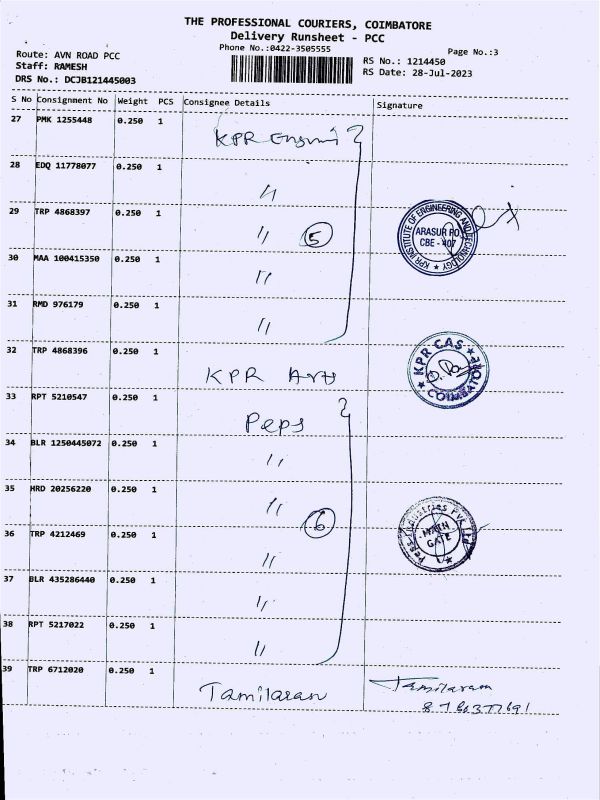 THE PROFESSIONAL COURIERS, COIMBATORE
Delivery Runsheet - PCC
Phone No.:0422-3505555
Page No.:3
Route: AVN ROAD PCC
Staff: RAMESH
DRS No.: DCJB121445003
RS No.: 1214450
RS Date: 28-Jul-2023
S No Consignment No Weight PCS Consignee Details Signature
27 PMK 1255448 0.250 1
28 EDQ 11778077 0.250 1 "
29 TRP 4868397 0.250 1 " 5
KPR INSTITUTE OF ENGINEERING AND TECHNOLOGY
ARASUR PO
CBE - 407
30 MAA 100415350 0.250 1 "
31 RMD 976179 0.250 1 "
32 TRP 4868396 0.250 1 KPR Arts
KPR CAS
COIMBATORE
33 RPT 5210547 0.250 1 Peps
34 BLR 1250445072 0.250 1 "
35 HRD 20256220 0.250 1 " 6
Peps Industries Pvt Ltd
MAIN
GATE
36 TRP 4212469 0.250 1 "
37 BLR 435286440 0.250 1 "
38 RPT 5217022 0.250 1 "
39 TRP 6712020 0.250 1 Tamilaran Tamilaram